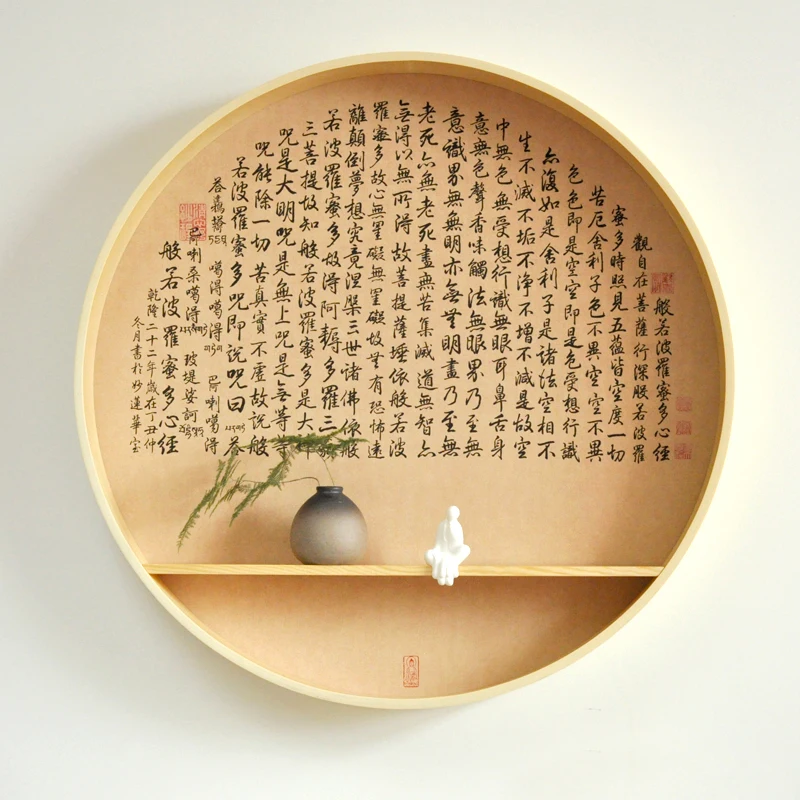 般若波羅蜜多心經
觀自在菩薩行深般若波羅
蜜多時照見五蘊皆空度一切
苦厄舍利子色不異空空不異
色色即是空空即是色受想行識
亦復如是舍利子是諸法空相不
生不滅不垢不淨不增不減是故空
中無色無受想行識無眼耳鼻舌身
意無色聲香味觸法無眼界乃至無
意識界無無明亦無無明盡乃至無
老死亦無老死盡無苦集滅道無智亦
無得以無所得故菩提薩埵依般若波
羅蜜多故心無罣礙無罣礙故無有恐怖遠
離顛倒夢想究竟涅槃三世諸佛依般
若波羅蜜多故得阿耨多羅三
三菩提故知般若波羅蜜多是大
咒是大明咒是無上咒是無等等
咒能除一切苦真實不虛故說般
若波羅蜜多咒即說咒曰
噶得噶得 噶得
喇桑噶得 玻提娑訶
般若波羅蜜多心經
乾隆二十二年歲在丁丑仲
冬月書於妙蓮華室